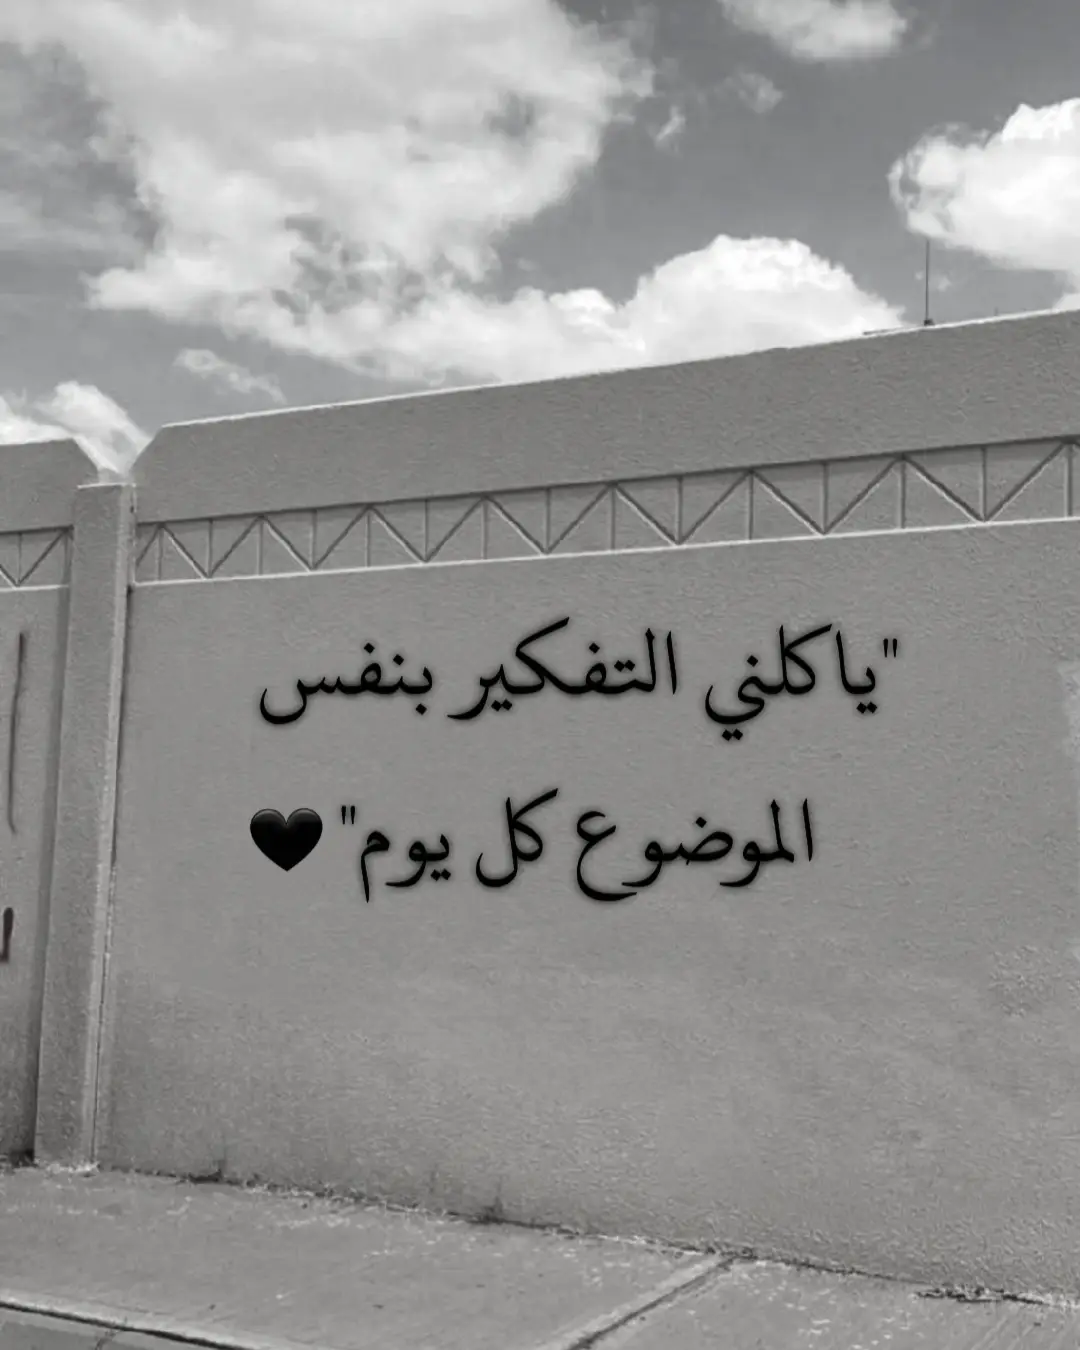 "ياكلني التفكير بنفس
الموضوع كل يوم"🖤